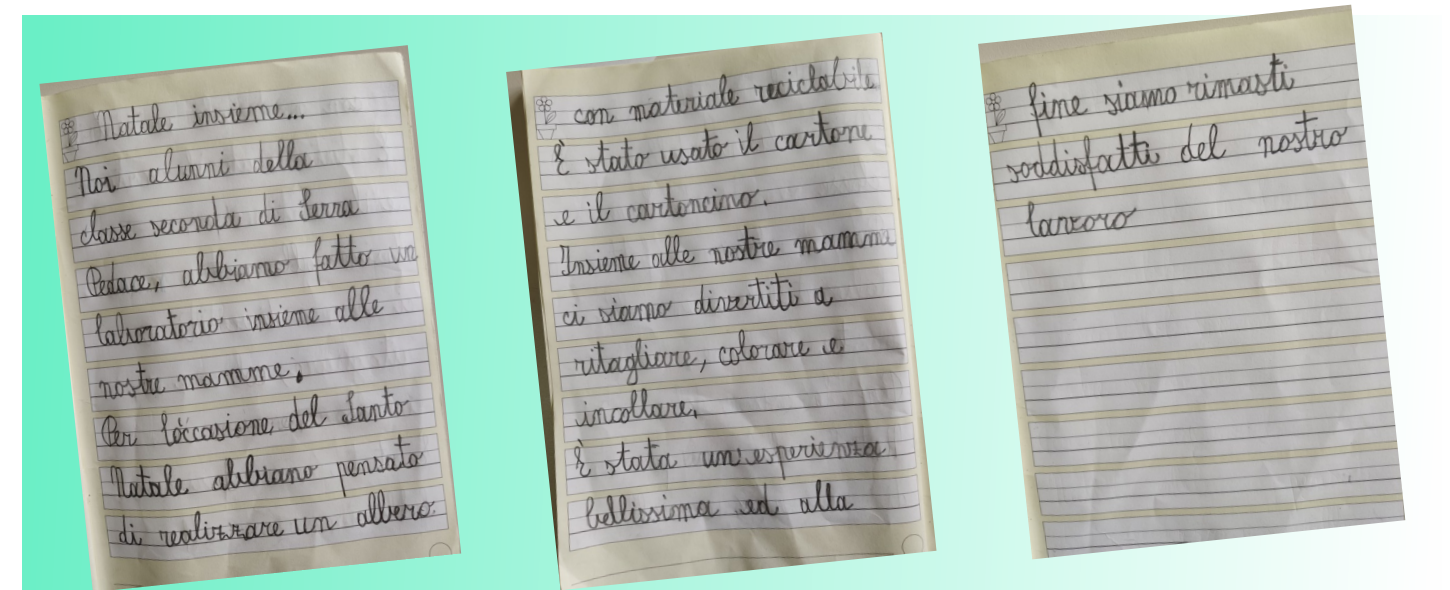 Natale insieme...
Noi alunni della
classe seconda di Serra
Pedace, abbiamo fatto un
laboratorio insieme alle
nostre mamme.
Per l'occasione del Santo
Natale abbiano pensato
di realizzare un albero
con materiale reciclabile
È stato usato il cartone
e il cartoncino.
Insieme alle nostre mamme
ci siamo divertiti a
ritagliare, colorare e
incollare.
È stata un'esperienza
bellissima ed alla
fine siamo rimasti
soddisfatti del nostro
lavoro